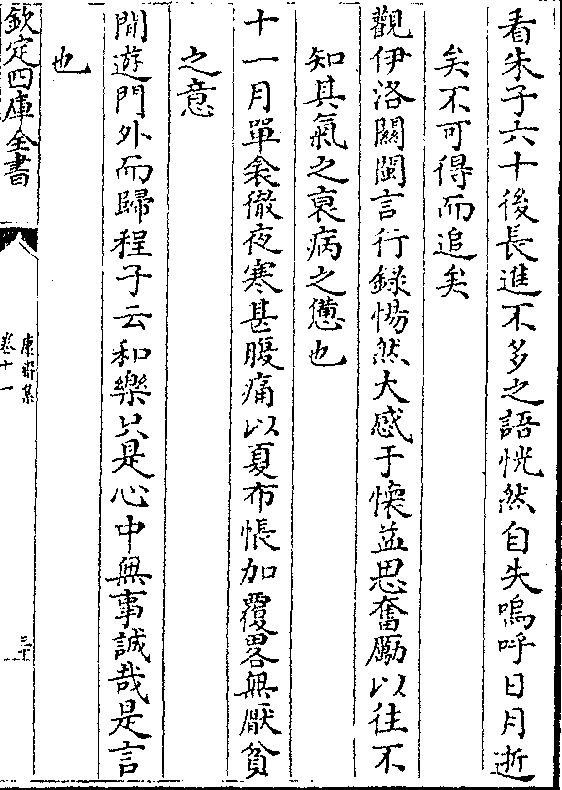 看朱子六十後長進不多之語恍然自失嗚呼日月逝
矣不可得而追矣
觀伊洛關閩言行錄惕然大感于懷益思奮勵以往不
知其氣之衰病之憊也
十一月單衾徹夜寒甚腹痛以夏布帳加覆畧無厭貧
之意
閒遊門外而歸程子云和樂只是心中無事誠哉是言
也
欽定四庫全書
康齋集
卷十一
三十